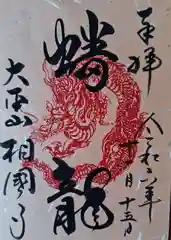 奉拝
令和 年
十五日
蟠龍
大本山相國寺